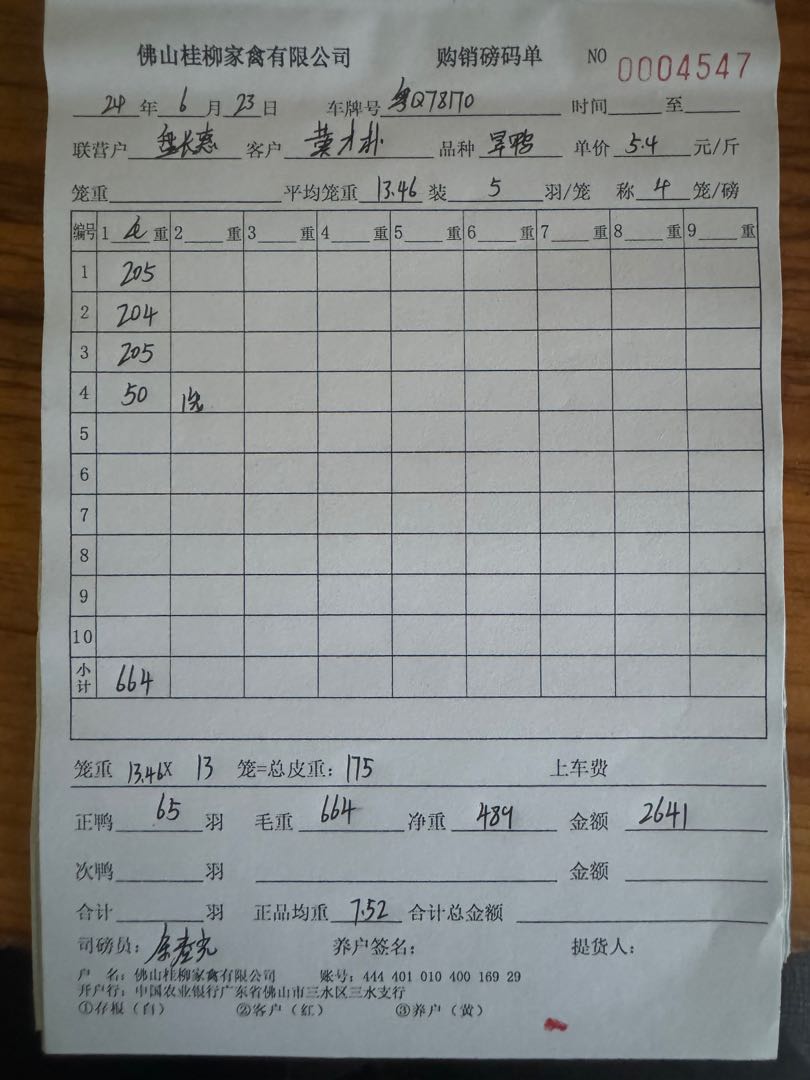 佛山桂柳家禽有限公司 购销磅码单 NO 0004547
24年6月23日 车牌号粤Q78170 时间 至
联营户 长惠 客户 黄才朴 品种 旱鸭 单价 5.4 元/斤
笼重 平均笼重 13.46 装 5 羽/笼 称 4 笼/磅
编号 1 毛 重 2 重 3 重 4 重 5 重 6 重 7 重 8 重 9 重
1 205
2 204
3 205
4 50 1笼
5
6
7
8
9
10
小计 664
笼重 13.46X 13 笼=总皮重：175 上车费
正鸭 65 羽 毛重 664 净重 489 金额 2641
次鸭 羽 金额
合计 羽 正品均重 7.52 合计总金额
司磅员： 养户签名： 提货人：
户 名：佛山桂柳家禽有限公司 账号：444 401 010 400 169 29
开户行：中国农业银行广东省佛山市三水区三水支行
①存根（白） ②客户（红） ③养户（黄）